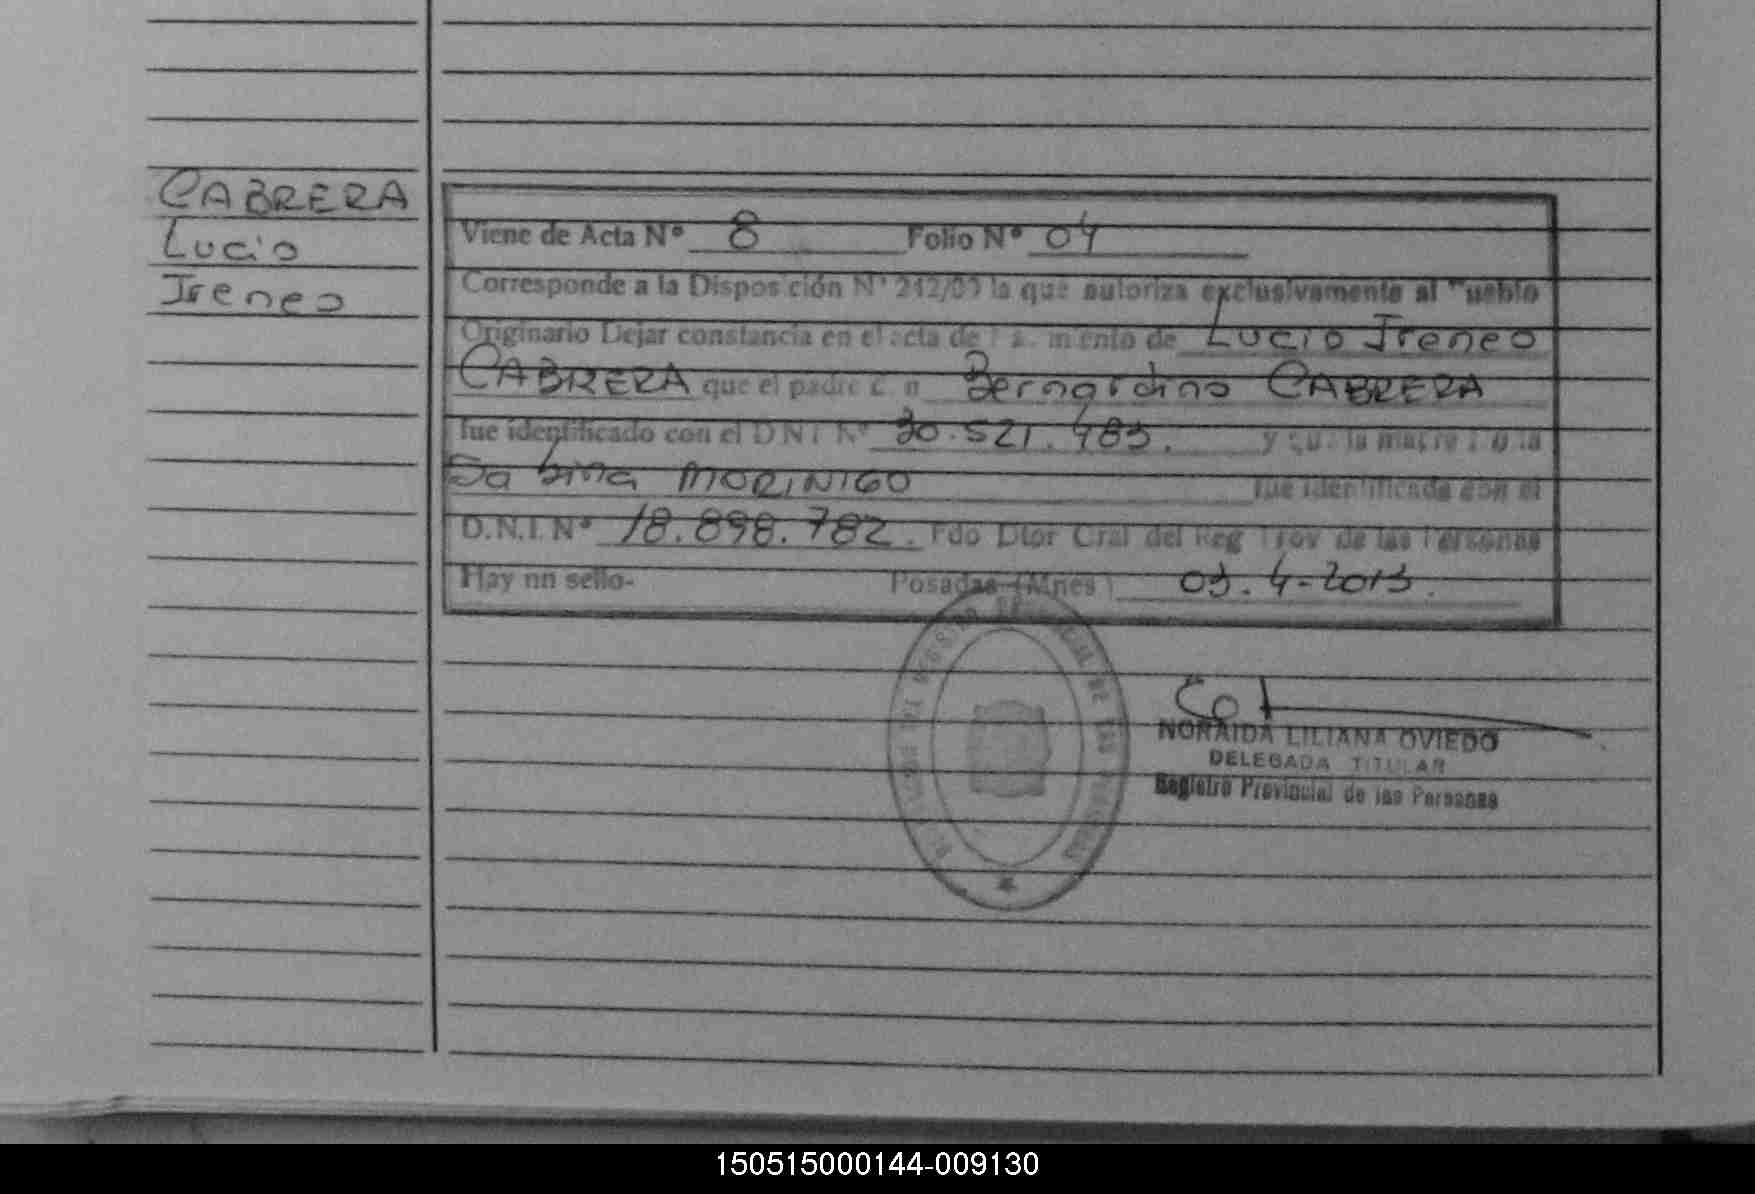 CABRERA
Lucio
Ireneo
Viene de Acta Nº 8 Folio Nº 04
Corresponde a la Disposición Nº 242/09 la que autoriza exclusivamente al Pueblo
Originario Dejar constancia en el acta de de Lucio Ireneo
CABRERA que el padre Bernardino CABRERA
fue identificado con el DNI Nº 30.521.483. y que la madre
Sabina MORINIGO fue identificada con el
D.N.I. Nº 18.898.782. Fdo Dtor Gral del Reg Prov de las Personas
Hay un sello- Posadas (Mnes) 03.4-2013.
NORAIDA LILIANA OVIEDO
DELEGADA TITULAR
Registro Provincial de las Personas
150515000144-009130